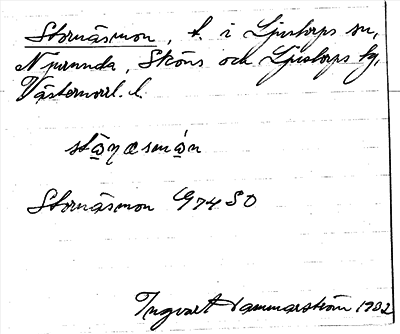 Stornäsmon, t. i Ljustorps sn,
N purunda, Sköns och Ljustorps tg,
Västernorrl. l.
stɷ̠ŋæsmɷ̠n
Stornäsmon G74 SO
Ingvart Hammarström 1932